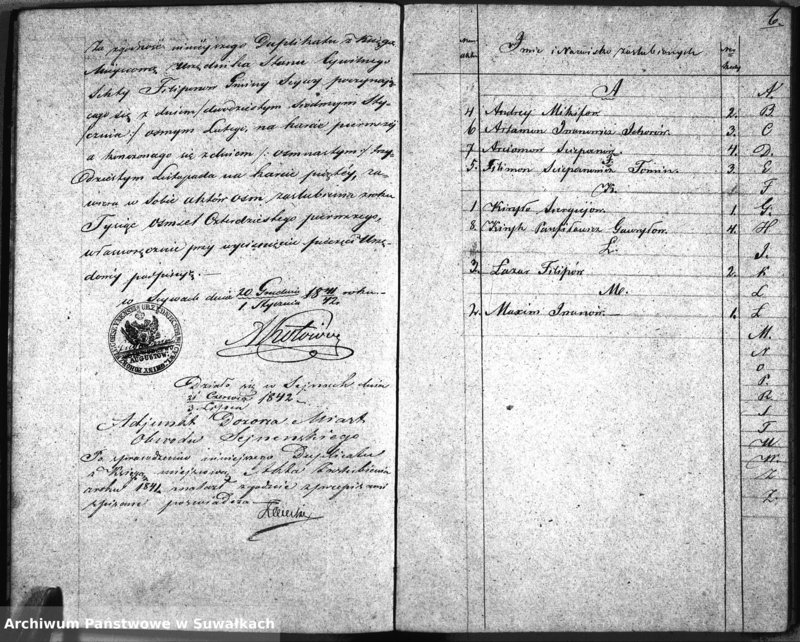 Za zgodność niniejszego Duplikatu z Księgą
Miejscową Urzędnika Stanu Cywilnego
Sekty Filiponow Gminy Sejwy poczynają-
cego się z dniem /dwudziestym siodmym Sty-
cznia:/ osmym Lutego, na karcie pierwszej
a konczonego się z dniem /: osmnastym :/ trzy-
dziestym Listopada na karcie piątéj, za-
wiera w Sobie aktów osm zaslubienia z roku
Tysiąc osmset Czterdziestego pierwszego,
własnoręcznie przy wyciśnieniu pieczęci Urzę-
dowej podpisuję. —
w Sejwach dnia 20 Grudnia / 1 Stycznia 1841/42 roku
Działo się w Sejnach dnia
21 Czerwca / 3 Lipca 1842 —
Adjunkt Dozorca Miast
Obwodu Sejnenskiego
Po sprawdzeniu niniejszego Duplikatu
z Księgą miejscową
z roku 1841 zgodnie z przepisami
spisane poswiadcza —
6.
No aktu
Imie i Nazwisko zaslubionych
No karty
A
4 Andrey Mikifor 2.
6 Artamon Iwanowicz 3.
7 Artomon Szczepanow 4.
5. Filimon Szczepanowicz Tomin 3.
K.
1 Kiryło Siergiejow 1.
8 Parfiłowicz Gawryłow. 4.
Ł.
3. Łazar Filipów 2.
M.
2. Maxim Iwanów — 1.
N
B
C
D.
E
F
G.
H
J.
K
L
Ł
M.
N
O
P.
R
S
T
U
W.
Z
Ż.
Archiwum Państwowe w Suwałkach